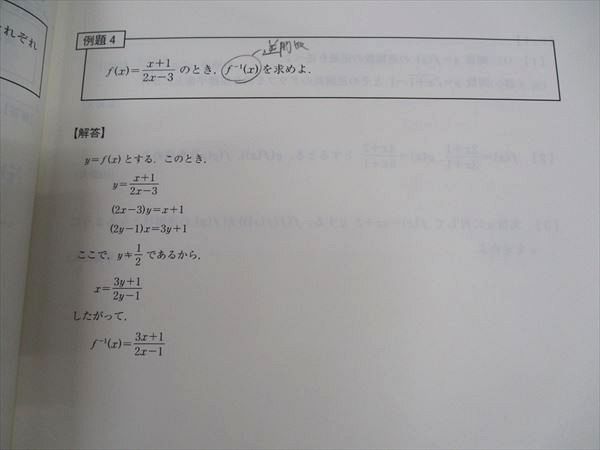 それぞれ
例題 4
逆関数
f(x)=\frac{x+1}{2x-3} のとき，f⁻¹(x) を求めよ．
【解答】
y=f(x) とする．このとき，
y=\frac{x+1}{2x-3}
(2x-3)y=x+1
(2y-1)x=3y+1
ここで，y≠\frac{1}{2} であるから，
x=\frac{3y+1}{2y-1}
したがって，
f⁻¹(x)=\frac{3x+1}{2x-1}